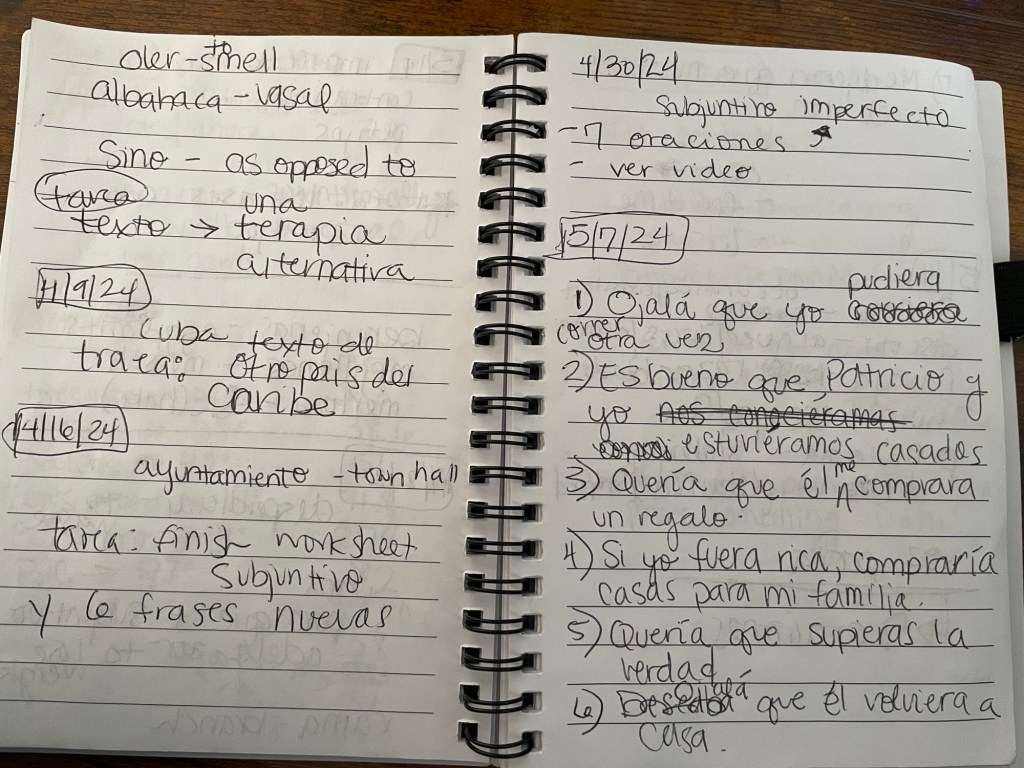 oler - to smell
albahaca - basal
Sino - as opposed to
tarea una
texto → terapia
alternativa
4/9/24
Cuba texto de
tratea: Otro pais del
Caribe
4/16/24
ayuntamiento - town hall
tarea: finish worksheet
Subjuntivo
y 6 frases nuevas
4/30/24
Subjuntivo imperfecto
- 7 oraciones
- ver video
5/7/24
pudiera
1) Ojalá que yo
correr
otra vez,
2) Es bueno que, Patricio y
yo nos conociéramas
estuviéramos casados
3) Quería que él me comprara
un regalo.
4) Si yo fuera rica, compraría
casas para mi familia.
5) Quería que supieras la
verdad.
6) Ojalá que él volviera a
casa.